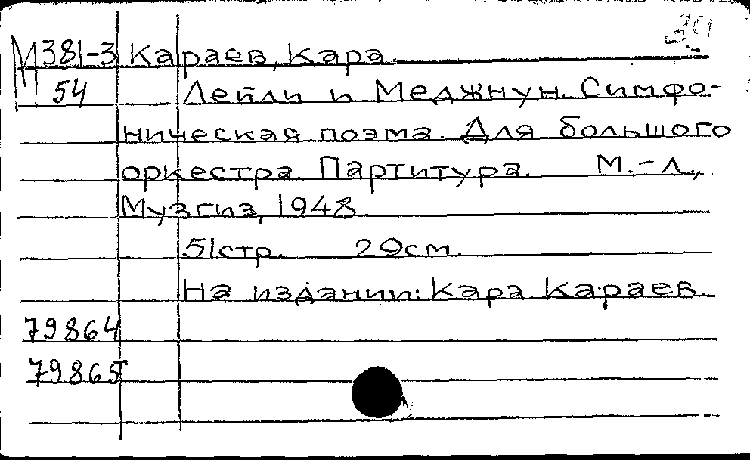 М381-3 Караев, Кара.
54 Лейли и Меджнун. Симфо-
ническая поэма. Для большого
оркестра. Партитура. М.-Л.,
Музгиз, 1948.
51стр. 29см.
На издании: Кара Караев.
79864
79865